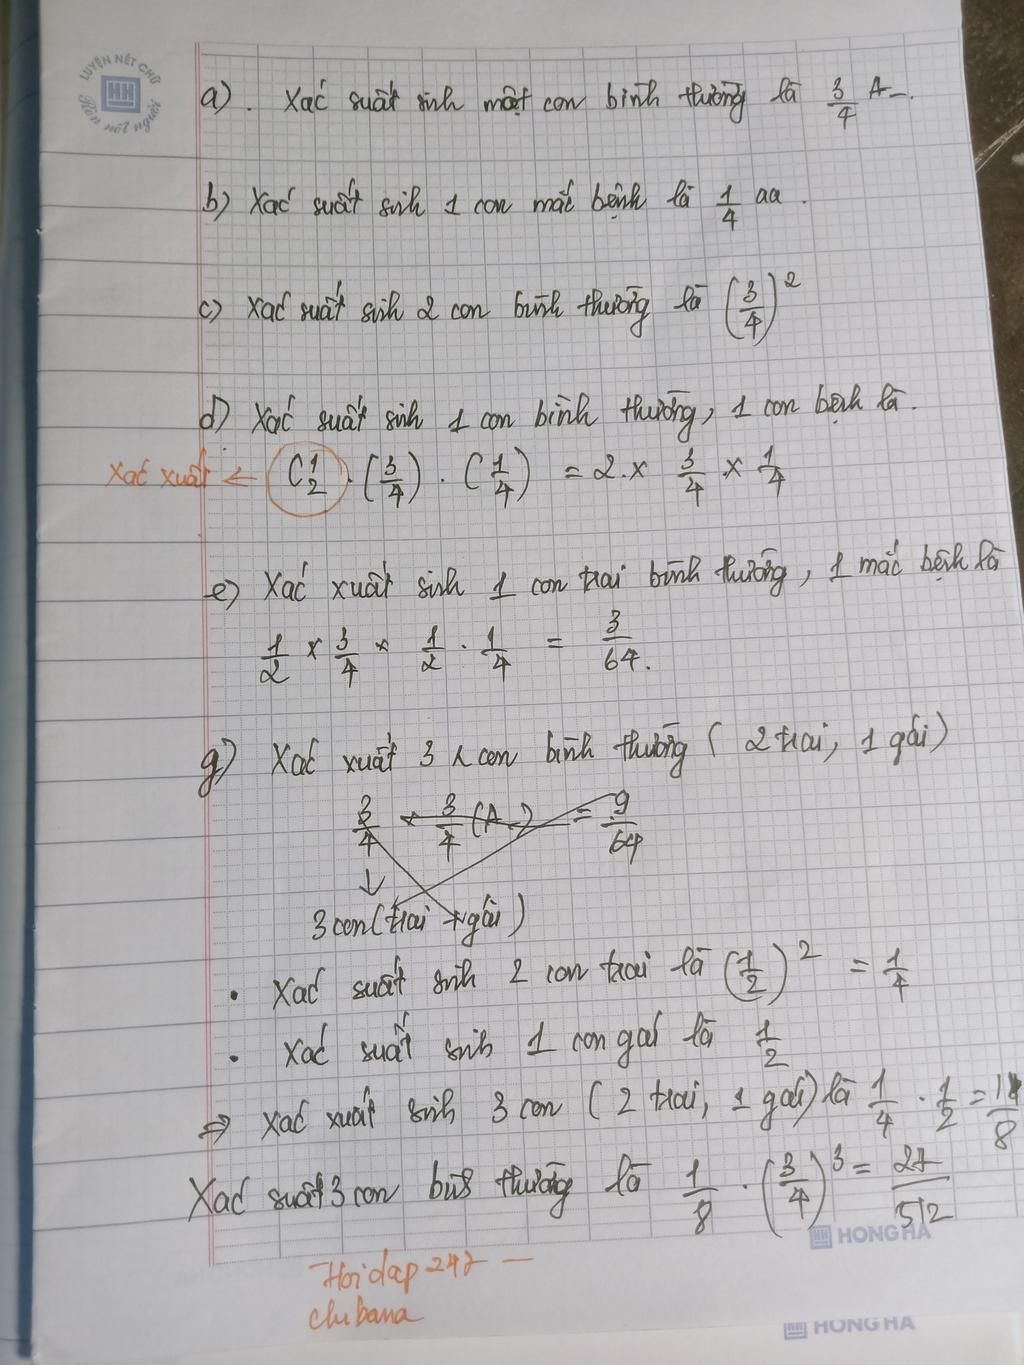 LUYỆN NÉT CHỮ
Rèn nết người
a). Xác suất sinh một con bình thường là 3/4 A-.
b) Xác suất sinh 1 con mắc bệnh là 1/4 aa.
c) Xác suất sinh 2 con bình thường là (3/4)²
d) Xác suất sinh 1 con bình thường, 1 con bệnh là.
Xác xuất ← C¹₂ · (3/4) · (1/4) = 2. x 3/4 x 1/4
e) Xác xuất sinh 1 con trai bình thường, 1 mắc bệnh là
1/2 x 3/4 x 1/2 . 1/4 = 3/64.
g) Xác xuất 3 con bình thường ( 2 trai, 1 gái)
3/4 x 3/4 (A-) = 9/64
↓
3 con (trai + gái)
• Xác suất sinh 2 con trai là (1/2)² = 1/4
• Xác suất sinh 1 con gái là 1/2
⇒ Xác xuất sinh 3 con ( 2 trai, 1 gái) là 1/4 . 1/2 = 1/8
Xác suất 3 con bình thường là 1/8 . (3/4)³ = 27/512
HONG HA
Hoidap247 —
chibana
HONG HA